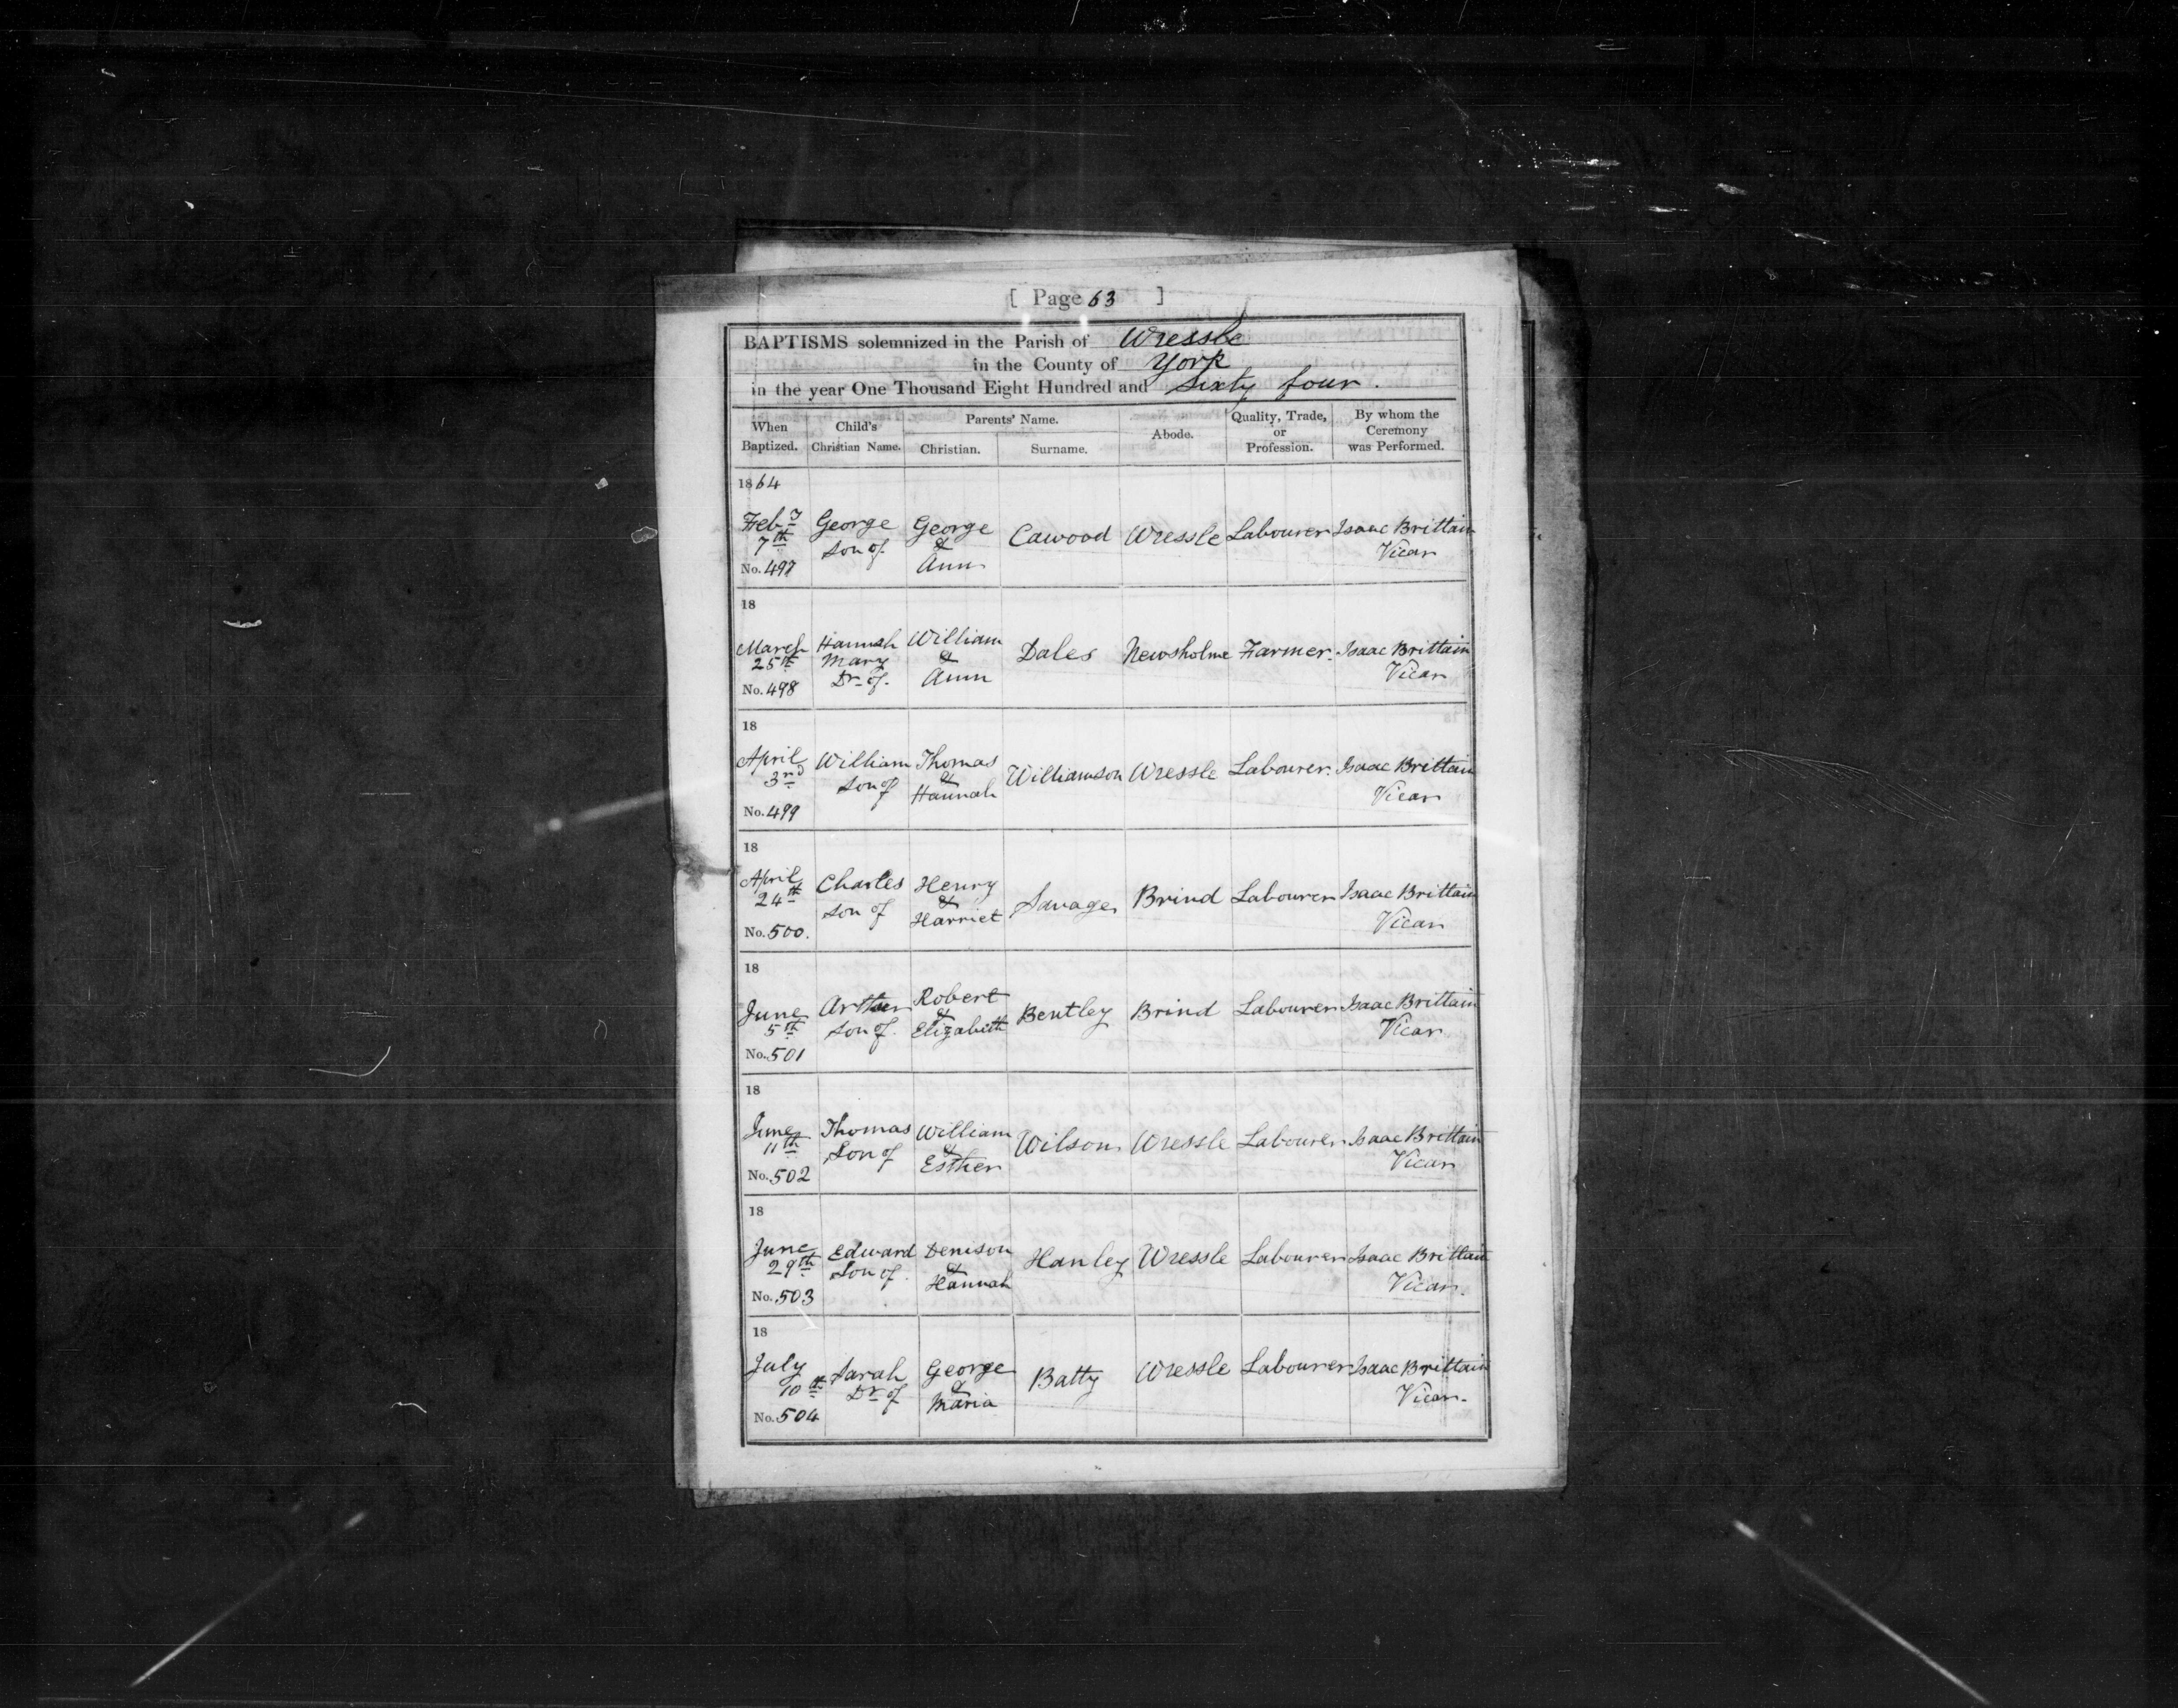 [ Page 63 ]
BAPTISMS solemnized in the Parish of Wressle
in the County of York
in the year One Thousand Eight Hundred and Sixty four.
When Baptized. Child's Christian Name. Parents' Name. Christian. Surname. Abode. Quality, Trade, or Profession. By whom the Ceremony was Performed.
1864
Feby 7th George son of George & Ann Cawood Wressle Labourer Isaac Brittain Vicar
No. 497
18
March 25th Hannah Mary Dr of. William & Ann Dales Newsholme Farmer. Isaac Brittain Vicar
No. 498
18
April 3rd William son of Thomas & Hannah Williamson Wressle Labourer. Isaac Brittain Vicar
No. 499
18
April 24th Charles son of Henry & Harriet Savage Brind Labourer Isaac Brittain Vicar
No. 500.
18
June 5th Arthur son of. Robert & Elizabeth Bentley Brind Labourer Isaac Brittain Vicar
No. 501
18
June 11th Thomas Son of William & Esther Wilson Wressle Labourer Isaac Brittain Vicar
No. 502
18
June 29th Edward Son of. Denison & Hannah Hanley Wressle Labourer Isaac Brittain Vicar.
No. 503
18
July 10th Sarah Dr of George & Maria Batty Wressle Labourer Isaac Brittain Vicar.
No. 504